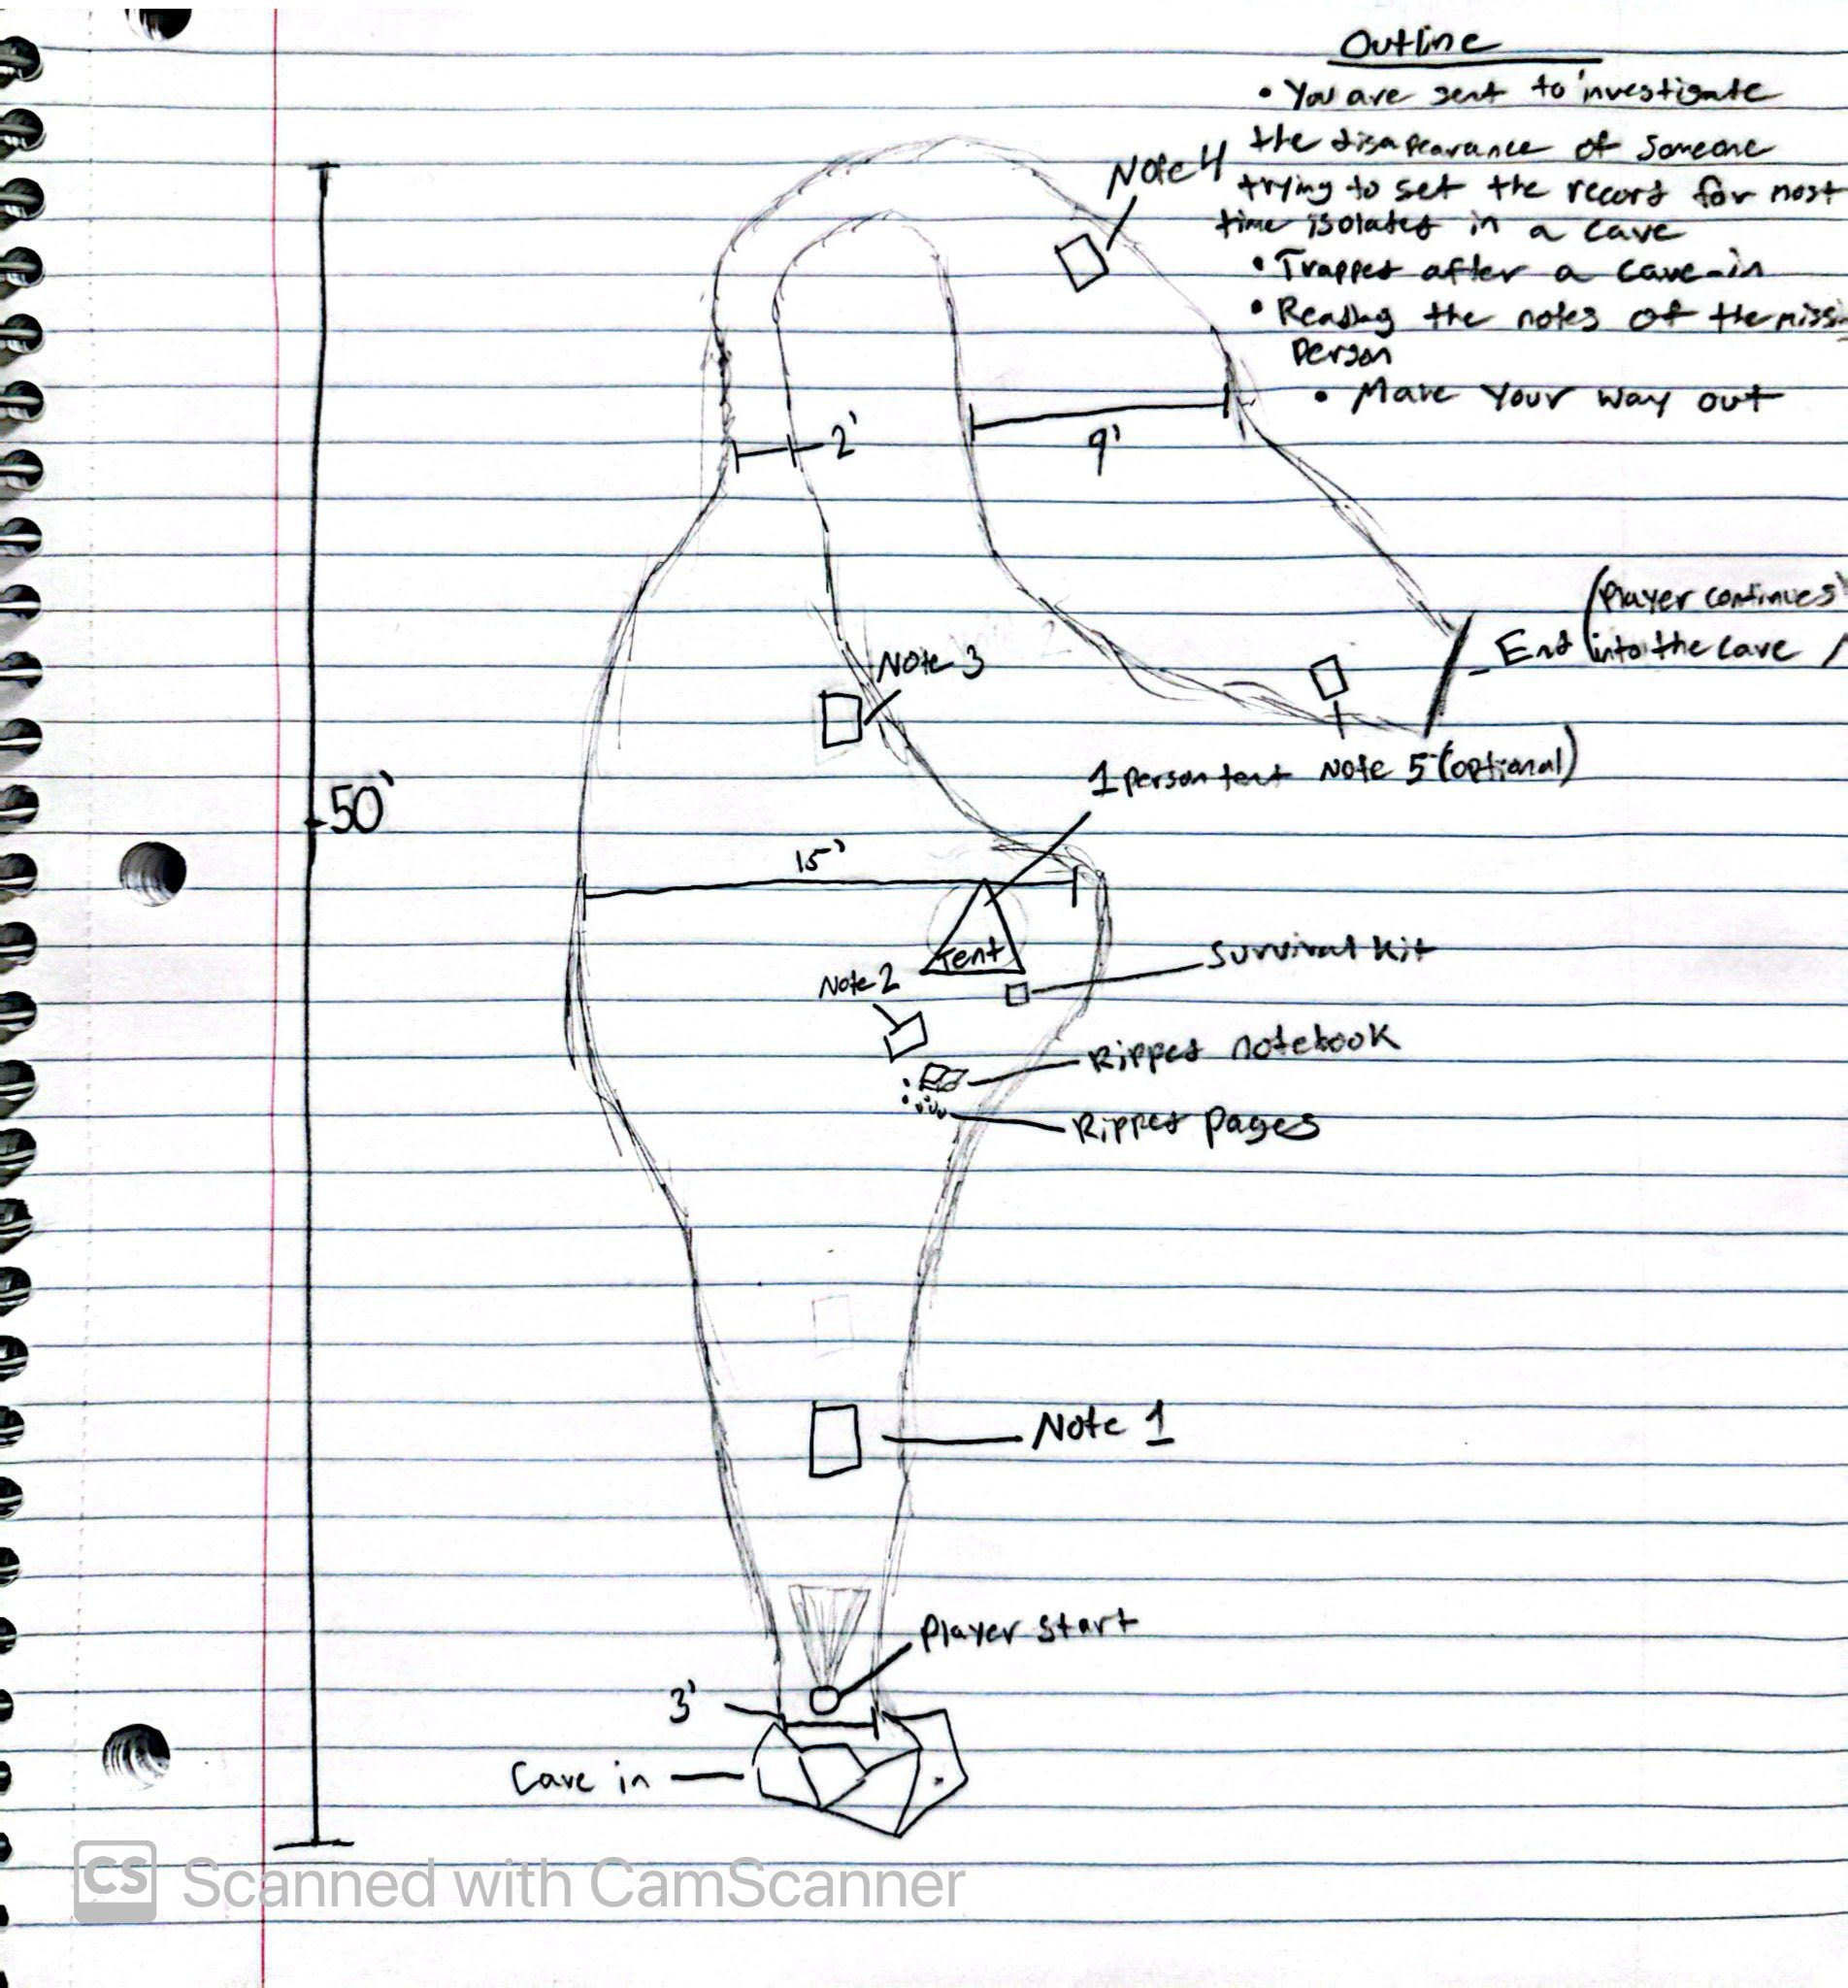 Outline
• You are sent to investigate
the disapearance of someone
trying to set the record for most
time isolated in a cave
• Trapped after a cave-in
• Reading the notes of the missi
person
• Make your way out
Note 4
2'
9'
(Player continues
End into the cave )
Note 3
50'
1 person tent Note 5 (optional)
15'
Tent
Survival Kit
Note 2
Ripped notebook
Ripped pages
Note 1
Player start
3'
Cave in
CS Scanned with CamScanner